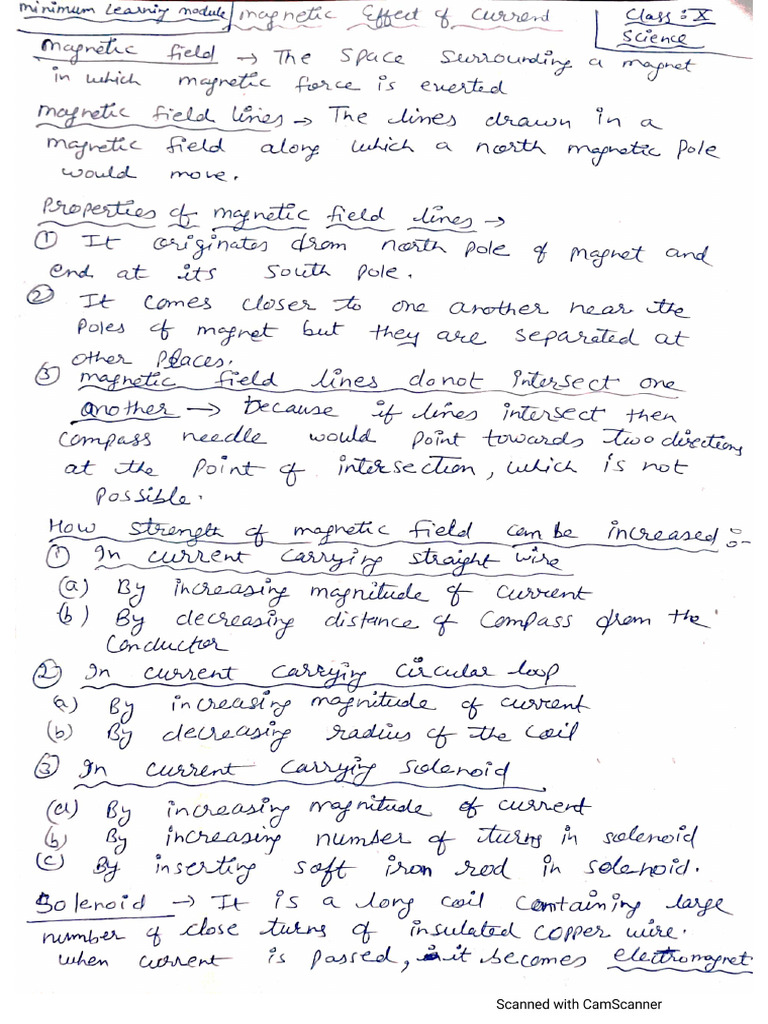 minimum Learning module magnetic Effect of Current Class: X
Science
magnetic field → The space surrounding a magnet
in which magnetic force is exerted
magnetic field lines → The lines drawn in a
magnetic field along which a north magnetic pole
would move.
Properties of magnetic field lines →
① It originates from north pole of magnet and
end at its south pole.
② It comes closer to one another near the
poles of magnet but they are separated at
other places.
③ magnetic field lines donot intersect one
another → because if lines intersect then
compass needle would point towards two directions
at the point of intersection, which is not
possible.
How strength of magnetic field can be increased :-
① In current carrying straight wire
(a) By increasing magnitude of current
(b) By decreasing distance of compass from the
conductor
② In current carrying circular loop
(a) By increasing magnitude of current
(b) By decreasing radius of the coil
③ In current carrying solenoid
(a) By increasing magnitude of current
(b) By increasing number of turns in solenoid
(c) By inserting soft iron rod in solenoid.
Solenoid → It is a long coil containing large
number of close turns of insulated copper wire.
when current is passed, it becomes electromagnet
Scanned with CamScanner